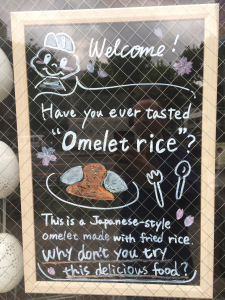 Welcome!
Have you ever tasted
"Omelet rice"?
This is a Japanese-style
omelet made with fried rice.
Why don't you try
this delicious food?